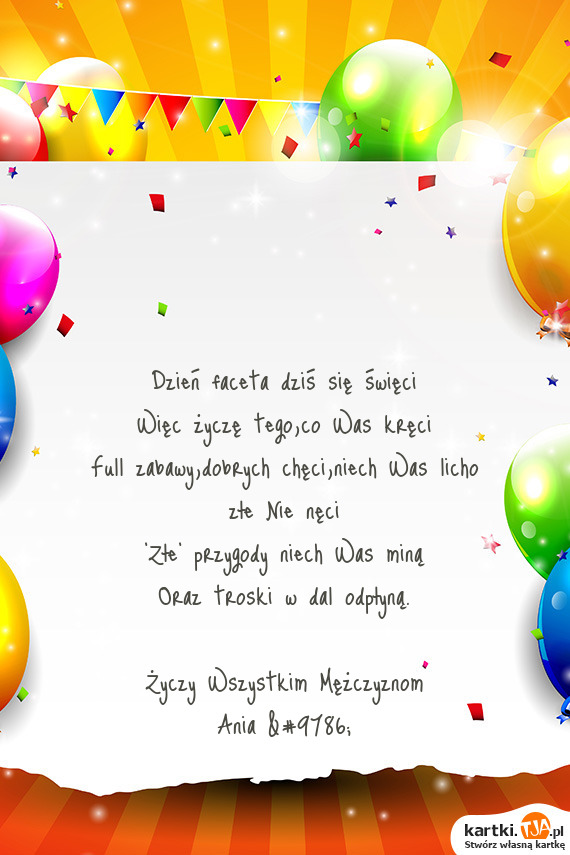 Dzień faceta dziś się święci
Więc życzę tego,co Was kręci
Full zabawy,dobrych chęci,niech Was licho
złe Nie nęci
"Złe" przygody niech Was miną
Oraz troski w dal odpłyną.
Życzy Wszystkim Mężczyznom
Ania &#9786;
kartki.TJA.pl
Stwórz własną kartkę